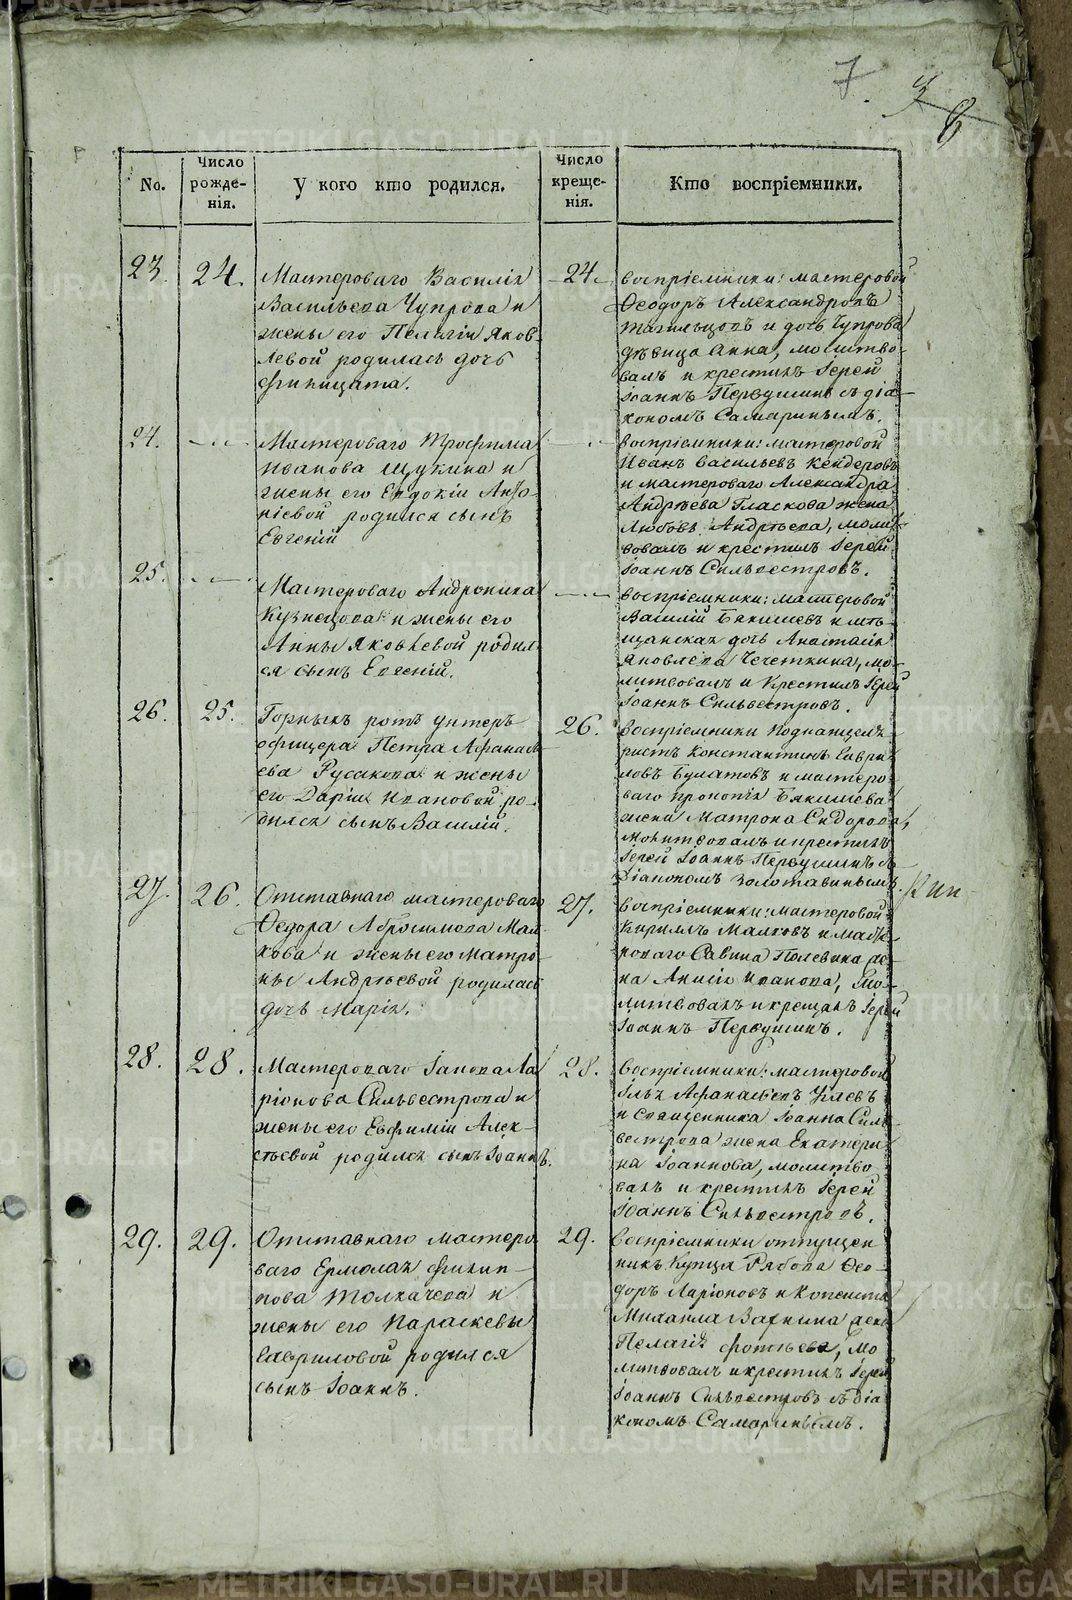 7.
No.
Число рожде-нія.
У кого кто родился.
Число креще-нія.
Кто воспріемники.
23.
24.
Мастероваго Василія
Васильева Чупрова и
жены его Пелагіи Яков-
левой родилась дочь
Фипицата.
24.
воспріемники: мастеровой
Ѳеодоръ Александровъ
Тагильцовъ и дочь Чупрова
дѣвица Анна, молитво-
валъ и крестилъ Іерей
Іоаннъ Первушинъ съ діа-
кономъ Самаринымъ.
24.
Мастероваго Трофима
Иванова Щукина и
жены его Евдокіи Анто-
ніевой родился сынъ
Евгеній
воспріемники: мастеровой
Иванъ Васильевъ Кендеровъ
и мастероваго Александра
Андрѣева Гласкова жена
Любовь Андрѣева, молит-
вовалъ и крестилъ Іерей
Іоаннъ Сильвестровъ.
25.
Мастероваго Андроника
Кузнецова и жены его
Анны Яковлевой родил
ся сынъ Евгеній.
воспріемники: мастеровой
Василій Бякишевъ и мѣ-
щанская дочь Анастасія
Яковлева Чечеткина, мо-
литвовалъ и крестилъ Іерей
Іоаннъ Сильвестровъ.
26.
25.
Горныхъ ротъ унтеръ
офицера Петра Афанась
ева Русакова и жены
его Даріи Ивановой ро-
дился сынъ Василій.
26.
воспріемники
ристъ Константинъ Гаври
ловъ Булатовъ и мастеро
ваго Прокопія Бякишева
жена Матрона Сидорова,
молитвовалъ и крестилъ
Іерей Іоаннъ Первушинъ съ
Діакономъ Золотавинымъ.
27.
26.
Отставнаго мастероваго
Ѳедора Абросимова Мал-
кова и жены его Матро-
ны Андрѣевой родилась
дочь Марія.
27.
воспріемники: мастеровой
Кирилъ Малковъ и масте-
роваго Савина Полевина же-
на Анисія Иванова, мо-
литвовалъ и крещалъ Іерей
Іоаннъ Первушинъ.
28.
28.
Мастероваго Іакова Ла
ріонова Сильвестрова и
жены его Евфиміи Алек-
сѣевой родился сынъ Іоаннъ.
28.
воспріемники: мастеровой
Илья Афанасьевъ Уляевъ
и священника Іоанна Силь-
вестрова жена Екатери
на Іоаннова, молитво
валъ и крестилъ Іерей
Іоаннъ Сильвестровъ.
29.
29.
Отставнаго мастеро
ваго Ермолая Филип-
пова Толкачева и
жены его Параскевы
Гавриловой родился
сынъ Іоаннъ.
29.
воспріемники отпущен
никъ купца Рябова Ѳео-
доръ Ларіоновъ и Копеиста
Михаила Варнина жена
Пелагія Фотѣева, мо
литвовалъ и крестилъ Іерей
Іоаннъ Сильвестровъ съ Діа
кономъ Самаринымъ.
METRIKI.GASO-URAL.RU